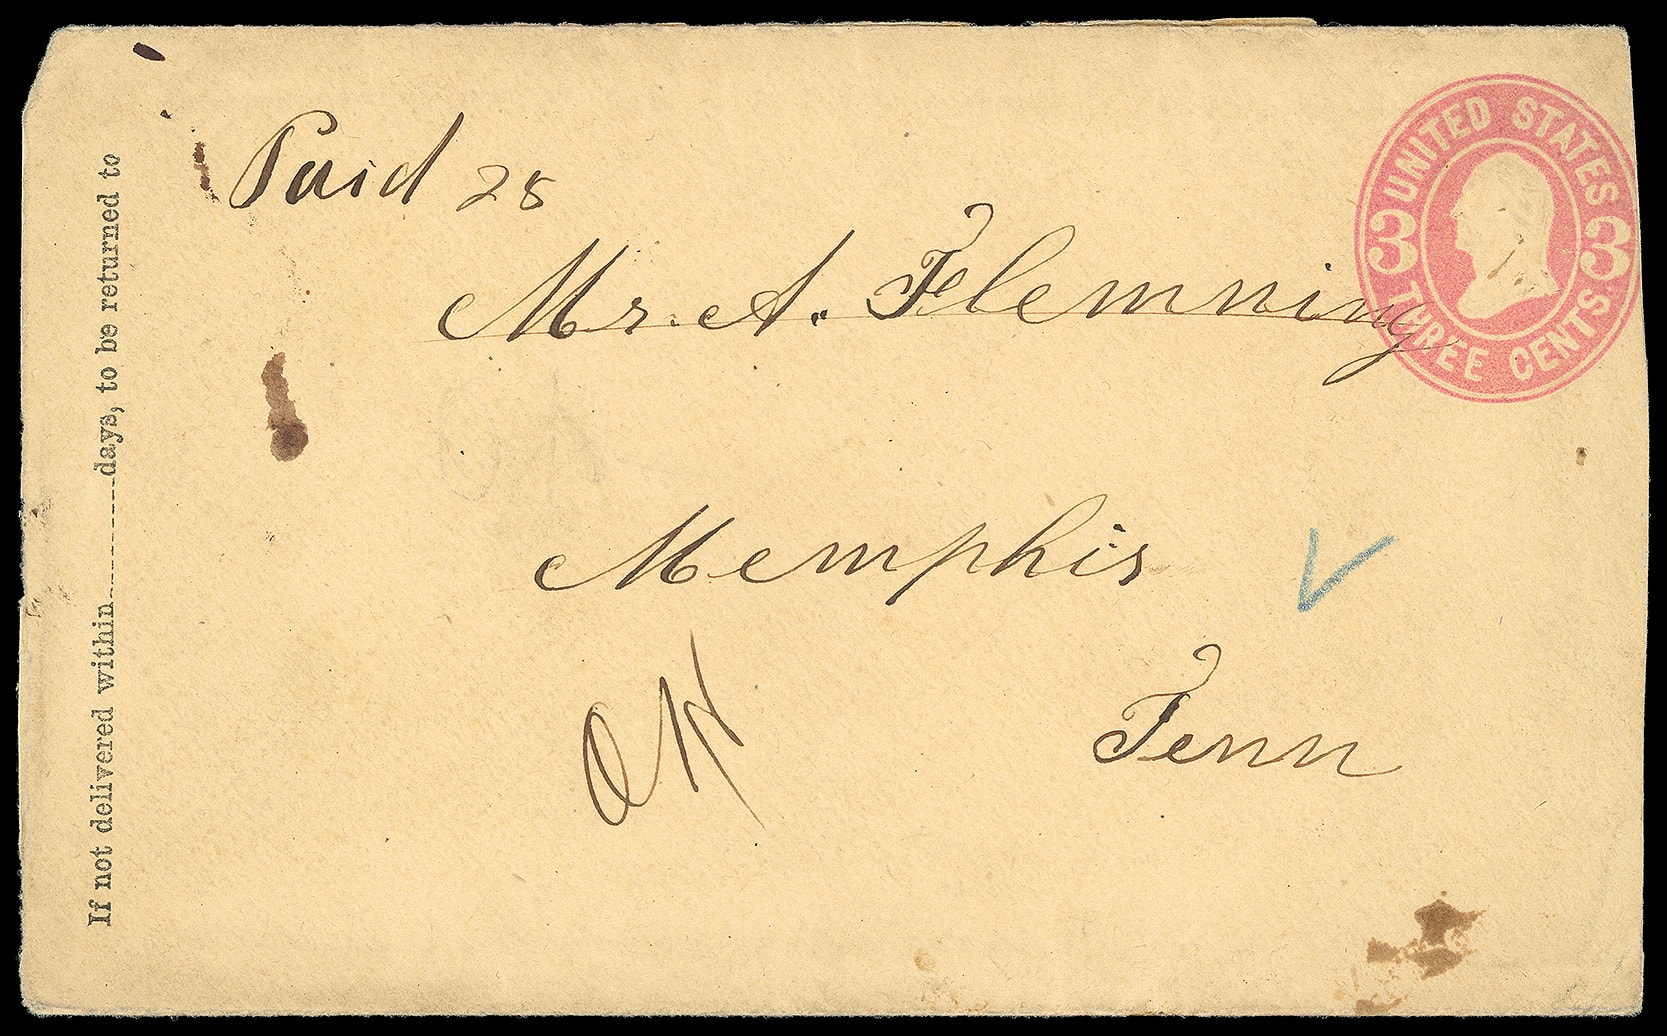 Paid 25
UNITED STATES
3 3
THREE CENTS
Mr. A. Flemning
Memphis
Tenn
If not delivered within--------days, to be returned to